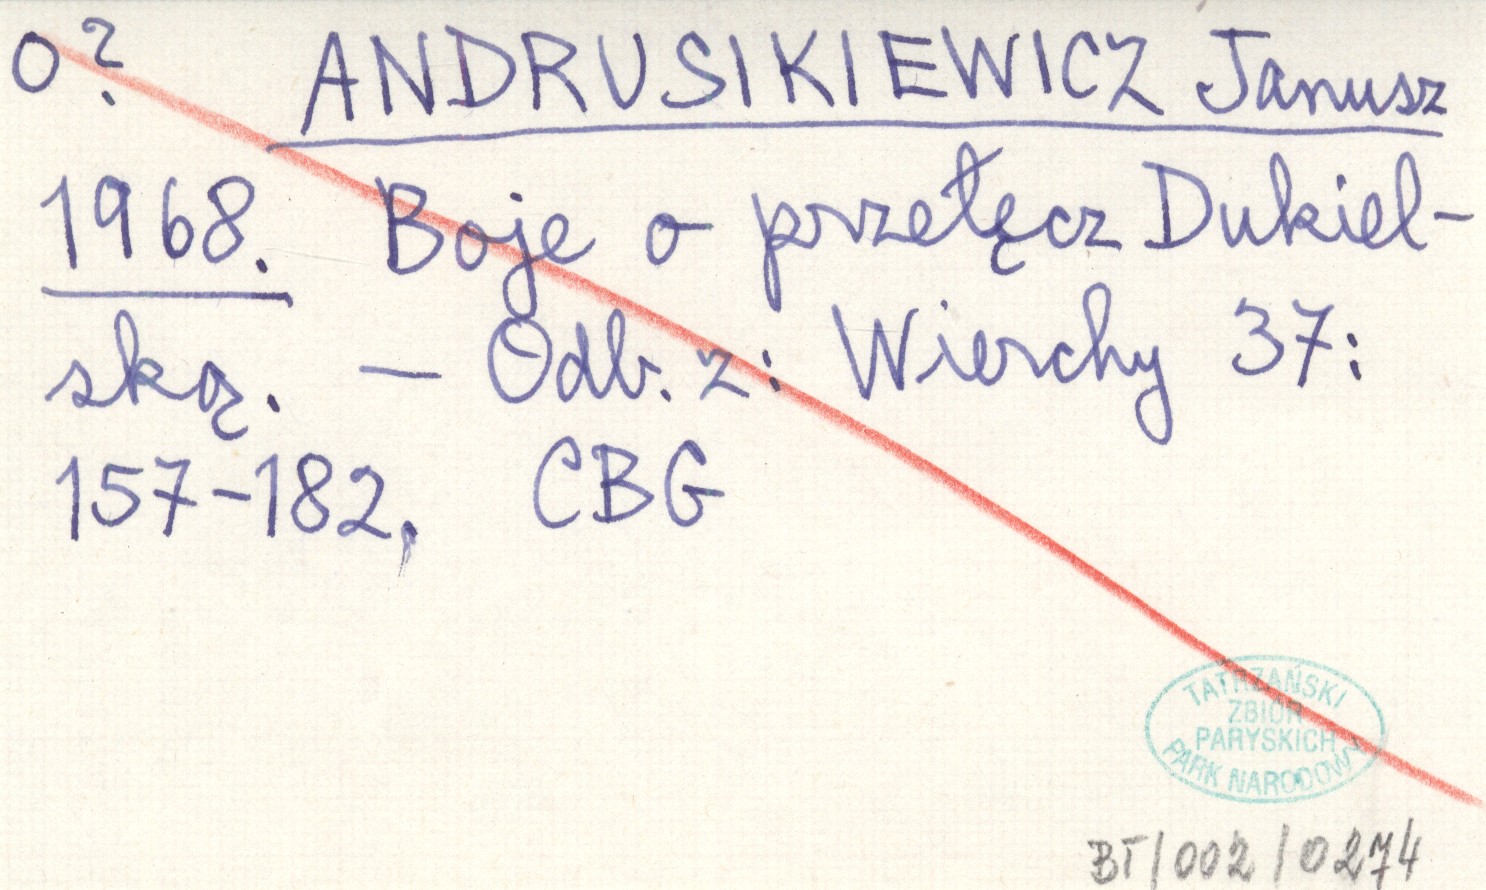 o? ANDRUSIKIEWICZ Janusz
1968. Boje o przełęcz Dukiel-
ską. — Odb. z: Wierchy 37:
157-182, CBG
TATRZAŃSKI
ZBIÓR
PARYSKICH
PARK NARODOWY
BT/002/0274